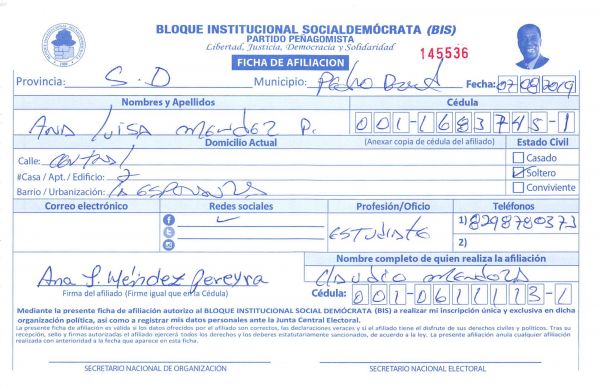 BLOQUE INSTITUCIONAL SOCIALDEMÓCRATA (BIS)
PARTIDO PEÑAGOMISTA
Libertad, Justicia, Democracia y Solidaridad
FICHA DE AFILIACION
145536
Provincia: S.D Municipio: Pedro Brand Fecha: 07/08/2019
Nombres y Apellidos Cédula
Ana Luisa Mendez P. 001-1683745-1
Domicilio Actual (Anexar copia de cédula del afiliado) Estado Civil
Calle: Central Casado
#Casa / Apt. / Edificio: 7 Soltero
Barrio / Urbanización: La Esperanza Conviviente
Correo electrónico Redes sociales Profesión/Oficio Teléfonos
Estudiante 1) 8298780373
2)
Nombre completo de quien realiza la afiliación
Ana L. Méndez Pereyra Claudio Mendoza
Firma del afiliado (Firme igual que en la Cédula) Cédula: 001-0611113-1
Mediante la presente ficha de afiliación autorizo al BLOQUE INSTITUCIONAL SOCIAL DEMÓCRATA (BIS) a realizar mi inscripción única y exclusiva en dicha
organización política, así como a registrar mis datos personales ante la Junta Central Electoral.
La presente ficha de afiliación es válida si los datos ofrecidos por el afiliado son correctos, las declaraciones veraces y si el afiliado tiene el disfrute de sus derechos civiles y políticos. Tras su
recepción, sello y firmas autorizadas el afiliado ejercerá todos los derechos y los deberes estatutariamente sancionados, de acuerdo a la ley. La presente afiliación anula cualquier afiliación
realizada con anterioridad a la fecha que aparece en esta ficha.
SECRETARIO NACIONAL DE ORGANIZACIÓN SECRETARIO NACIONAL ELECTORAL